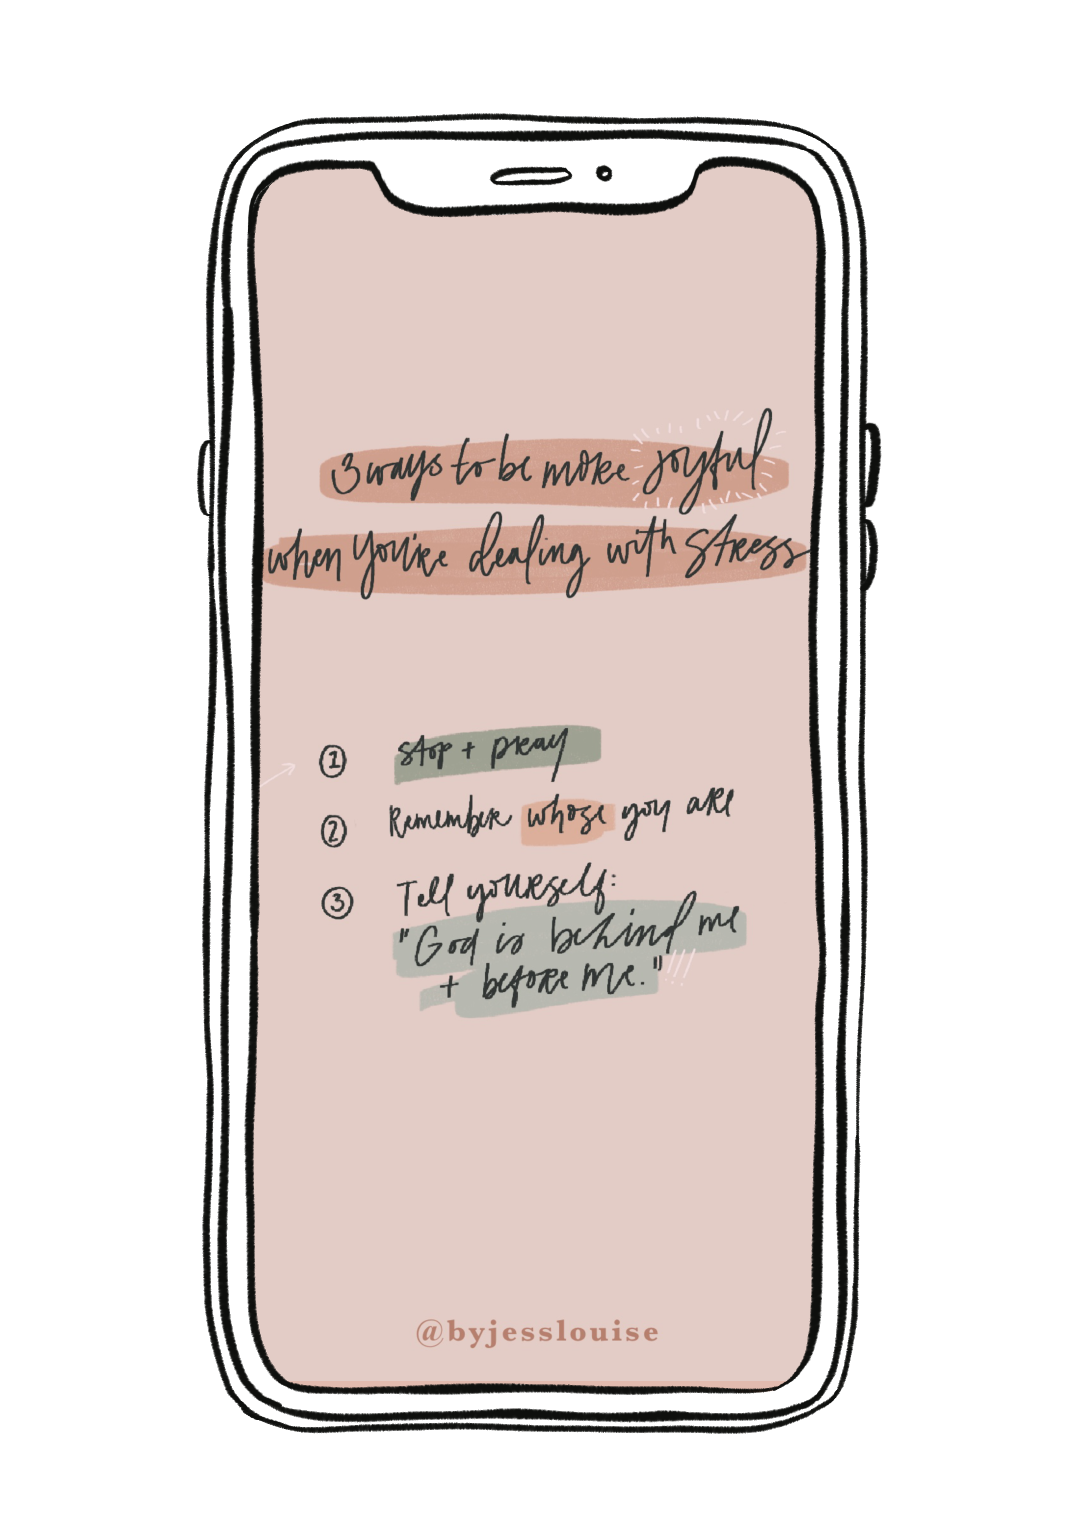 3 ways to be more joyful
when you're dealing with stress
1 stop + pray
2 Remember whose you are
3 Tell yourself:
"God is behind me
+ before me."
@byjesslouise